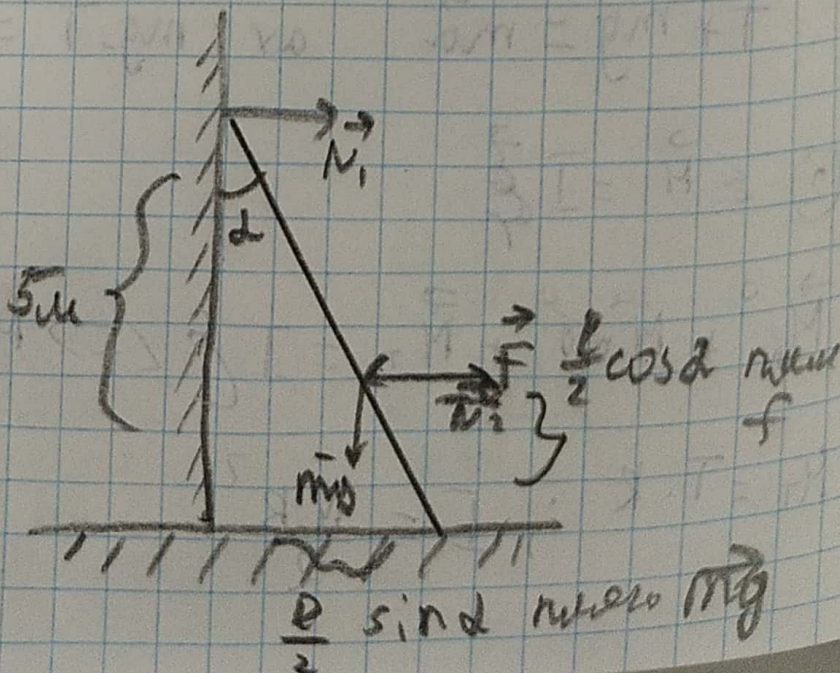 N₁
α
5м
F
l/2 cosα плечо
f
N₂
mg
l/2 sinα плечо mg